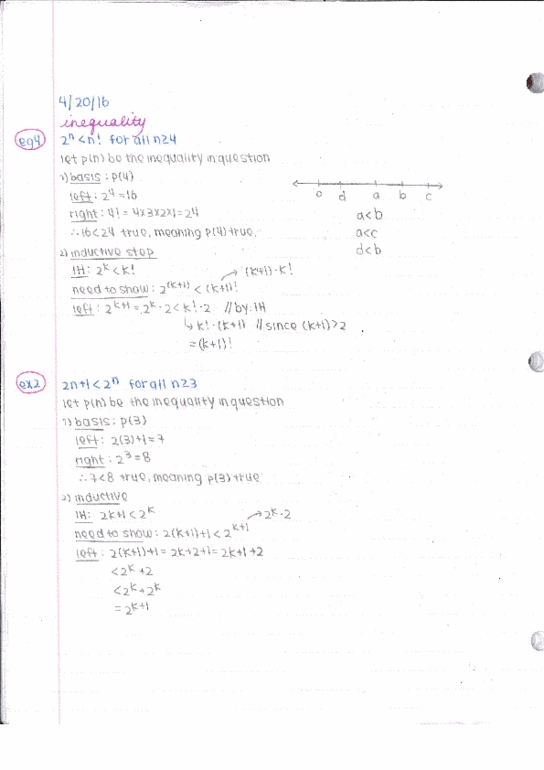 4/20/16
inequality
eg4 2ⁿ < n! for all n≥4
let p(n) be the inequality in question
1) basis: p(4)
left: 2⁴ = 16
right: 4! = 4x3x2x1 = 24
∴ 16 < 24 true, meaning p(4) true.
0 d a b c
a<b
a<c
d<b
2) inductive step
IH: 2ᵏ < k!
→ (k+1)·k!
need to show: 2⁽ᵏ⁺¹⁾ < (k+1)!
left: 2ᵏ⁺¹ = 2ᵏ·2 < k!·2 //by IH
↳ k!·(k+1) //since (k+1)>2
= (k+1)!
ex2 2n+1 < 2ⁿ for all n≥3
let p(n) be the inequality in question
1) basis: p(3)
left: 2(3)+1 = 7
right: 2³ = 8
∴ 7 < 8 true, meaning p(3) true
2) inductive
IH: 2k+1 < 2ᵏ
→ 2ᵏ·2
need to show: 2(k+1)+1 < 2ᵏ⁺¹
left: 2(k+1)+1 = 2k+2+1 = 2k+1+2
< 2ᵏ+2
< 2ᵏ+2ᵏ
= 2ᵏ⁺¹